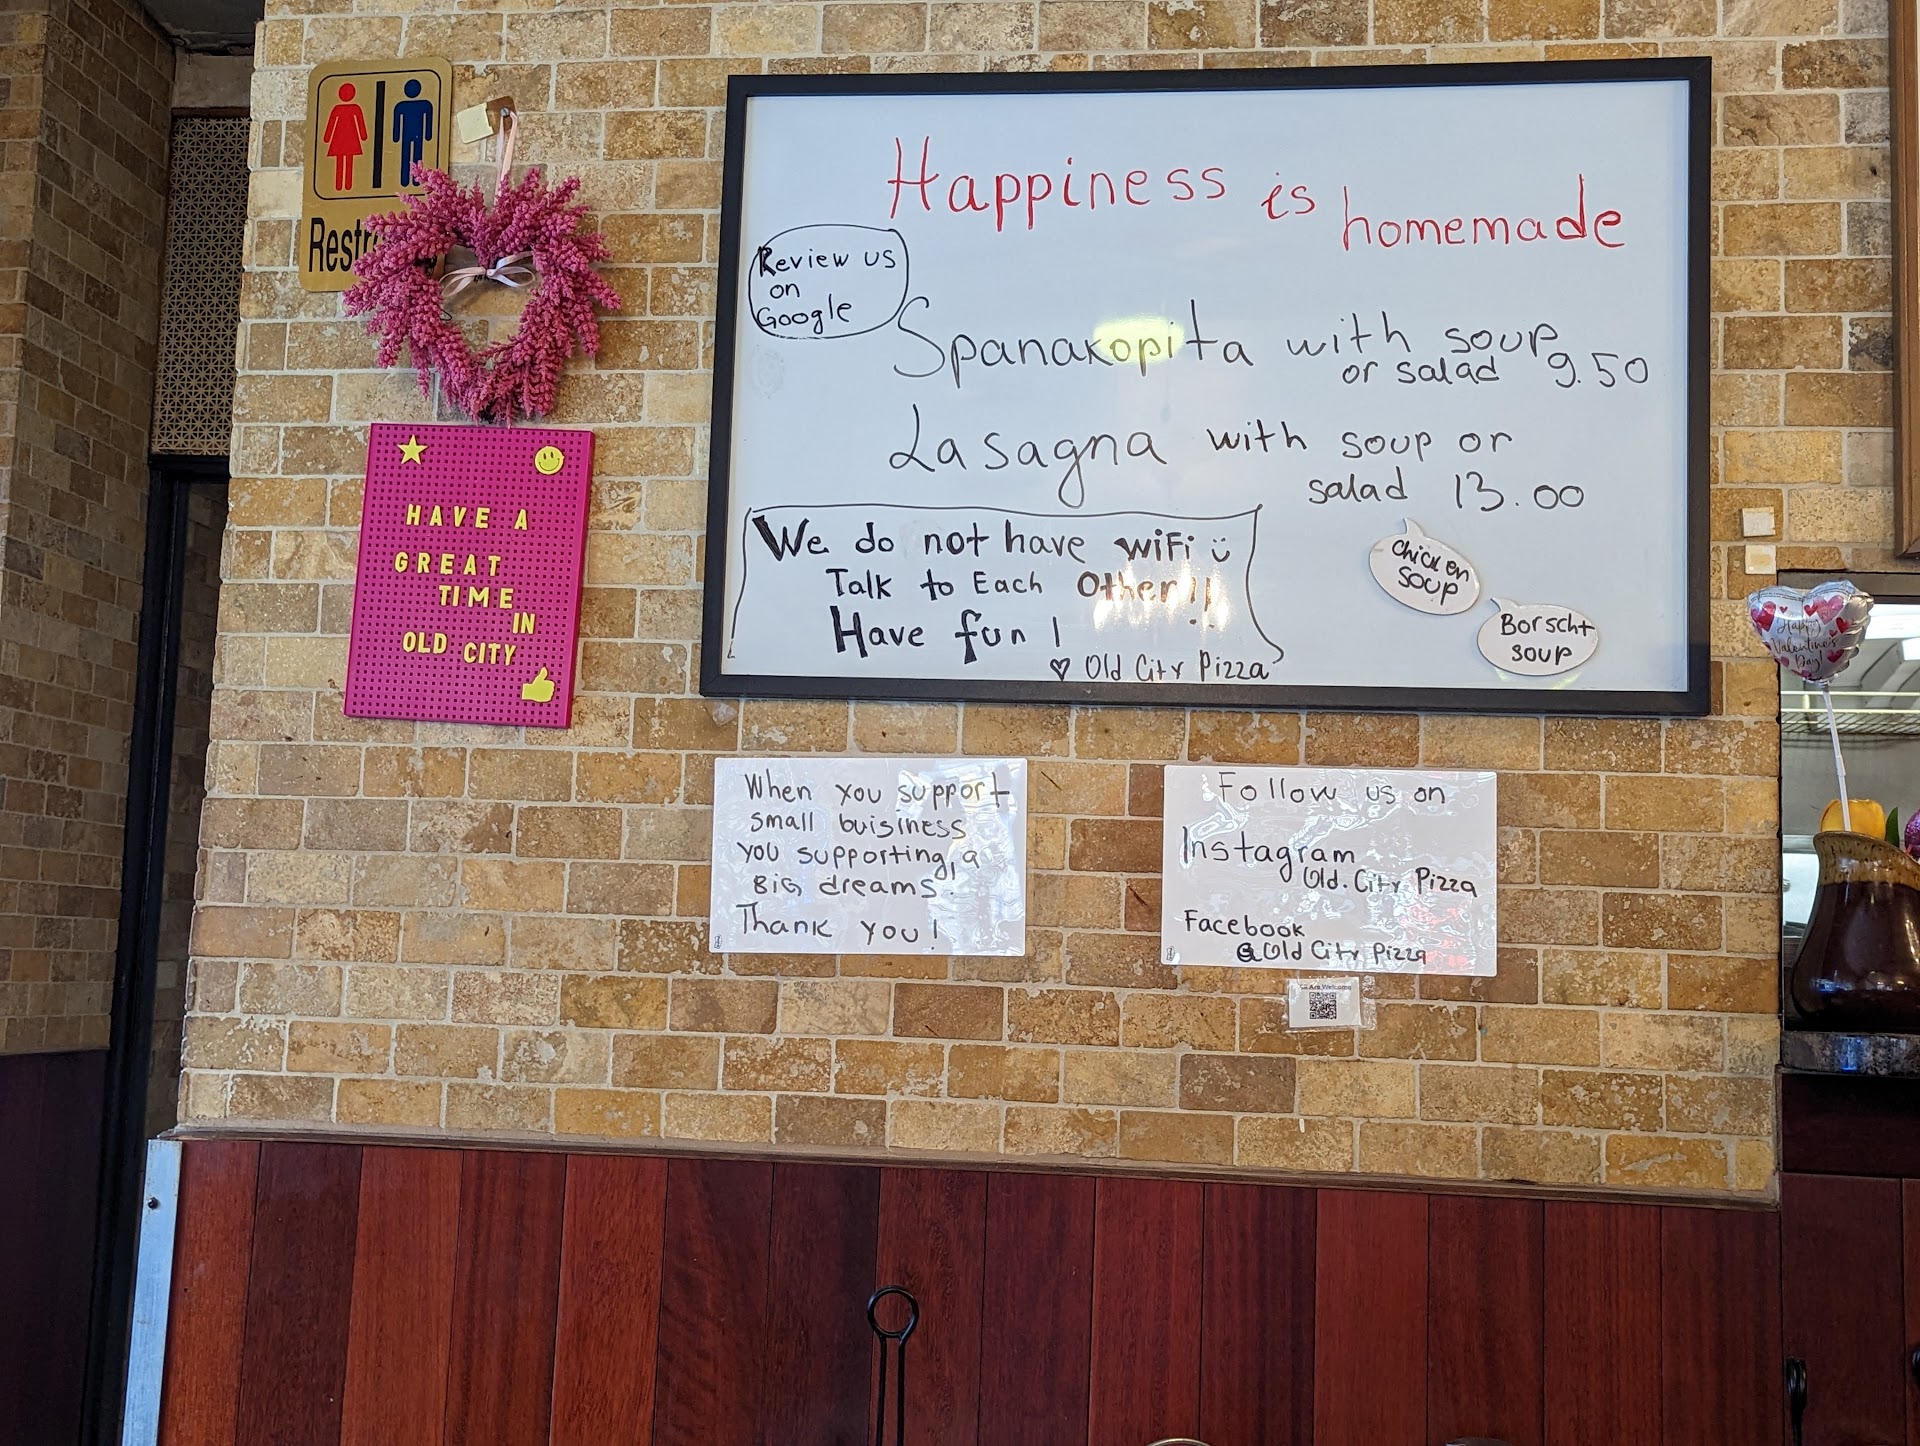 Happiness is homemade
Review us
on
Google
Spanakopita with soup
or salad 9.50
Lasagna with soup or
salad 13.00
We do not have WiFi
Talk to Each Other!!
Have fun!
Old City Pizza
Chicken
Soup
Borscht
soup
HAVE A
GREAT
TIME
IN
OLD CITY
When you support
small buisiness
you supporting a
Big dreams!
Thank you!
Follow us on
Instagram
Old.City Pizza
Facebook
@Old City Pizza
Are Welcome
Happy
Valentine's
Day!